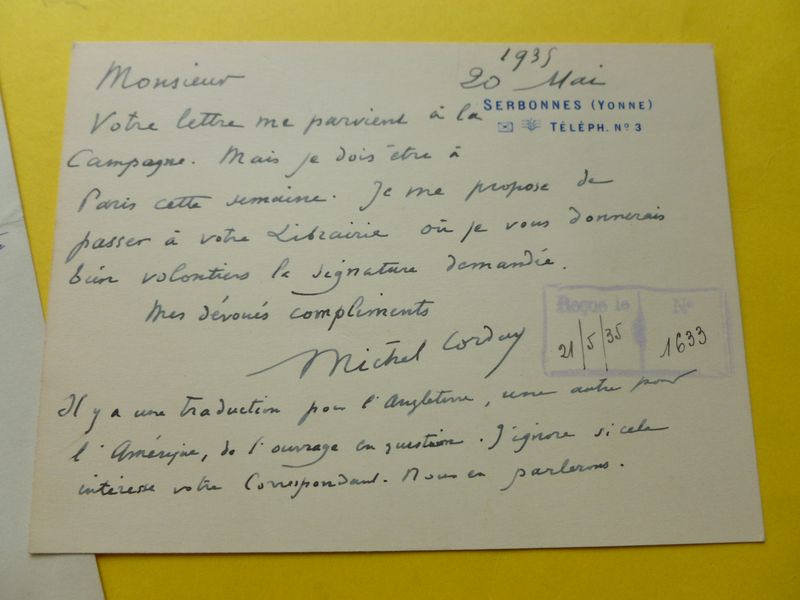 1935
Monsieur 20 Mai
SERBONNES (YONNE)
TÉLÉPH. Nº 3
Votre lettre me parvient à la
Campagne. Mais je dois être à
Paris cette semaine. Je me propose de
passer à votre Librairie où je vous donnerais
bien volontiers la signature demandée.
Mes dévoués compliments
Michel Corday
Reçue le Nº
21/5/35 1633
Il y a une traduction pour l'Angleterre, une autre pour
l'Amérique, de l'ouvrage en question. J'ignore si cela
intéresse votre Correspondant. Nous en parlerons.